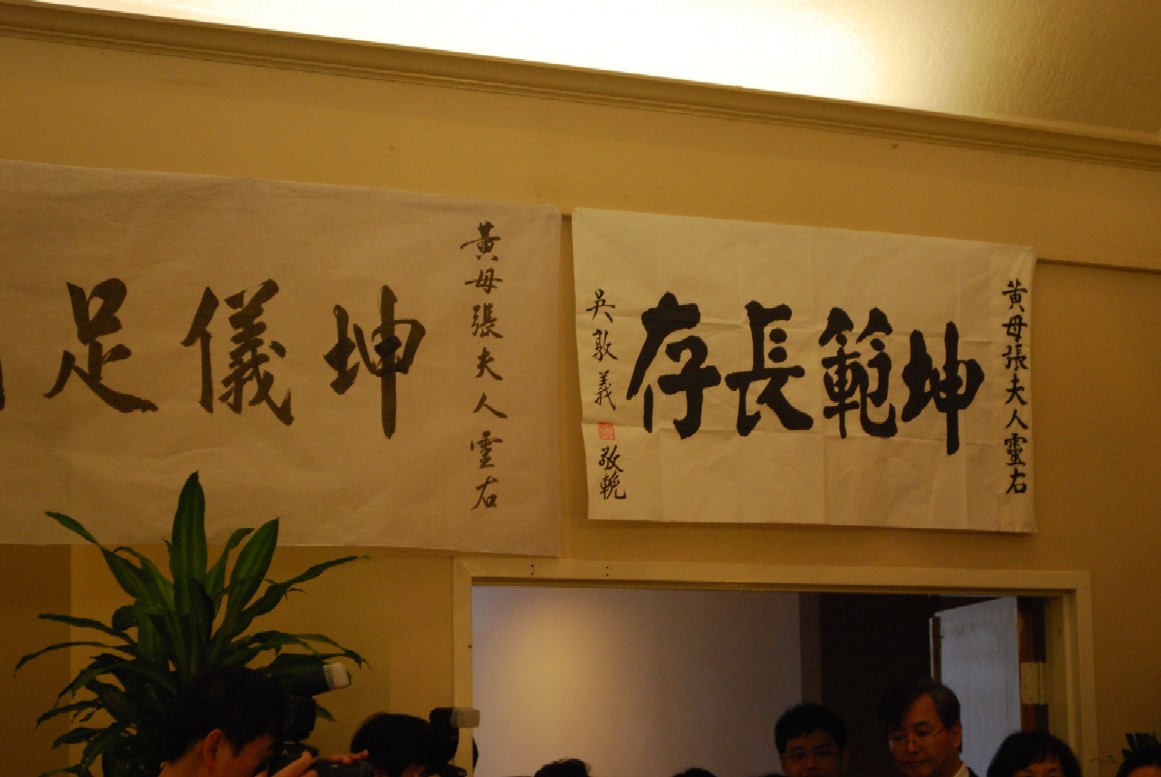 黃母張夫人靈右
坤範長存
吳敦義 敬輓
黃母張夫人靈右
坤儀足